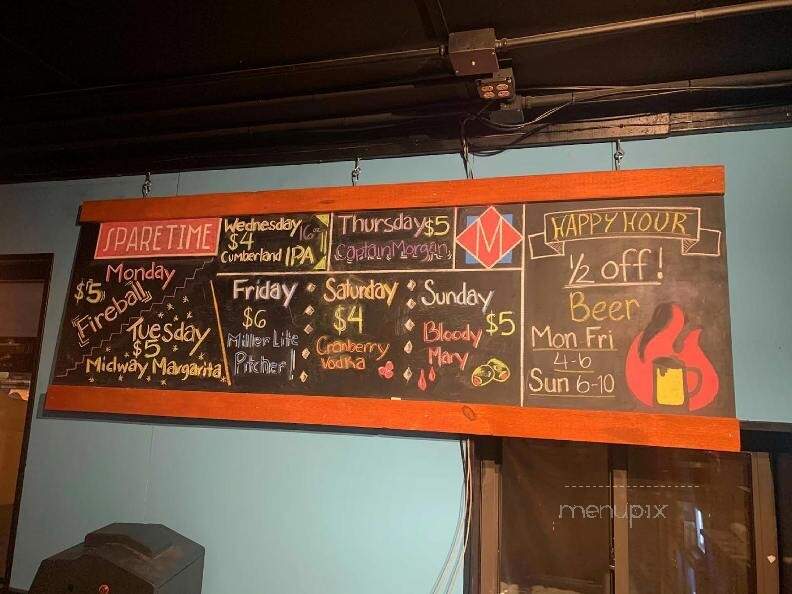 SPARETIME
Monday
$5
Fireball
Tuesday
$5
Midway Margarita
Wednesday
$4 16oz
Cumberland IPA
Thursday $5
Captain Morgan
M
Friday
$6
Miller Lite
Pitcher!
Saturday
$4
Cranberry
Vodka
Sunday
$5
Bloody
Mary
HAPPY HOUR
1/2 off!
Beer
Mon Fri
4-6
Sun 6-10
menupix